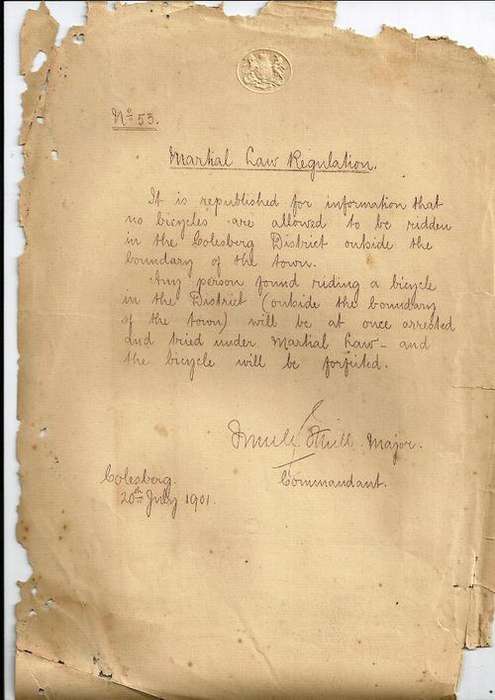 No. 53.
Martial Law Regulation.
It is republished for information that
no bicycles are allowed to be ridden
in the Colesberg District outside the
boundary of the town.
Any person found riding a bicycle
in the District (outside the boundary
of the town) will be at once arrested
and tried under Martial Law – and
the bicycle will be forfeited.
Major.
Commandant.
Colesberg.
20th July 1901.